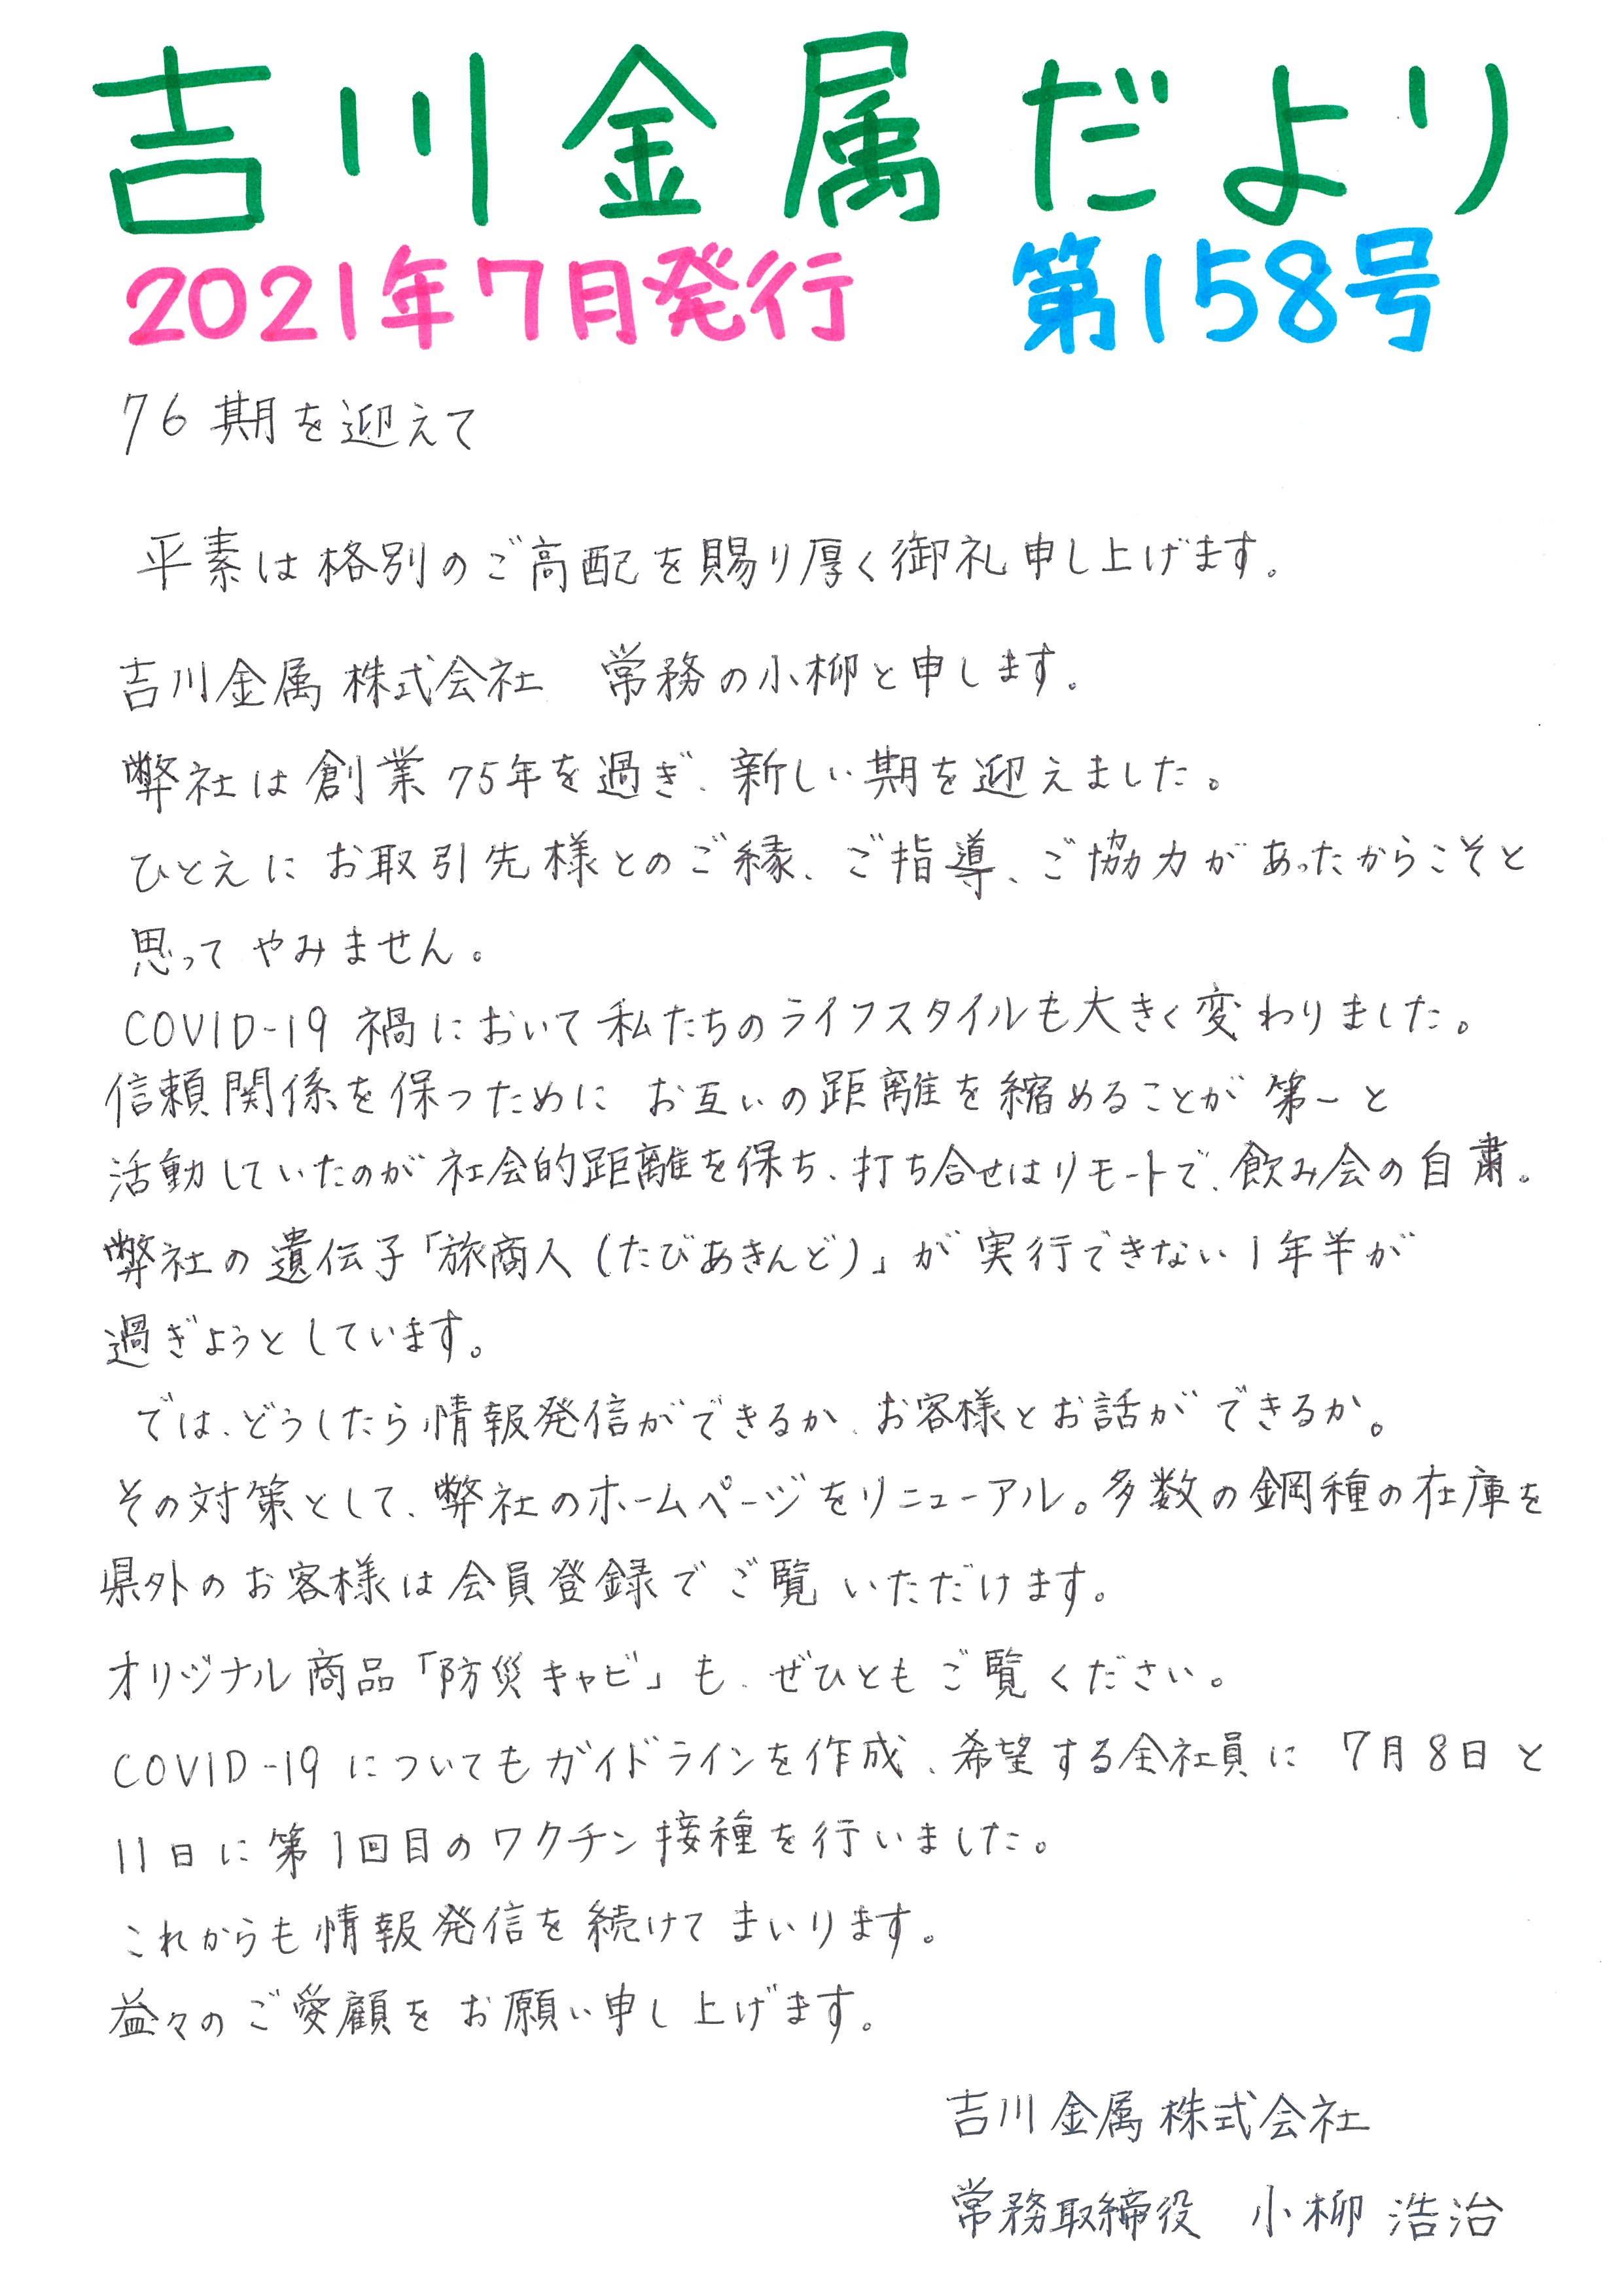 吉川金属だより
2021年7月発行 第158号
76期を迎えて
平素は格別のご高配を賜り厚く御礼申し上げます。
吉川金属株式会社 常務の小柳と申します。
弊社は創業75年を過ぎ、新しい期を迎えました。
ひとえにお取引先様とのご縁、ご指導、ご協力があったからこそと
思ってやみません。
COVID-19禍において私たちのライフスタイルも大きく変わりました。
信頼関係を保つために お互いの距離を縮めることが第一と
活動していたのが社会的距離を保ち、打ち合せはリモートで、飲み会の自粛。
弊社の遺伝子「旅商人(たびあきんど)」が実行できない1年半が
過ぎようとしています。
では、どうしたら情報発信ができるか、お客様とお話ができるか。
その対策として、弊社のホームページをリニューアル。多数の鋼種の在庫を
県外のお客様は会員登録でご覧いただけます。
オリジナル商品「防災キャビ」も、ぜひともご覧ください。
COVID-19についてもガイドラインを作成、希望する全社員に 7月8日と
11日に第1回目のワクチン接種を行いました。
これからも情報発信を続けてまいります。
益々のご愛顧をお願い申し上げます。
吉川金属株式会社
常務取締役 小柳 浩治